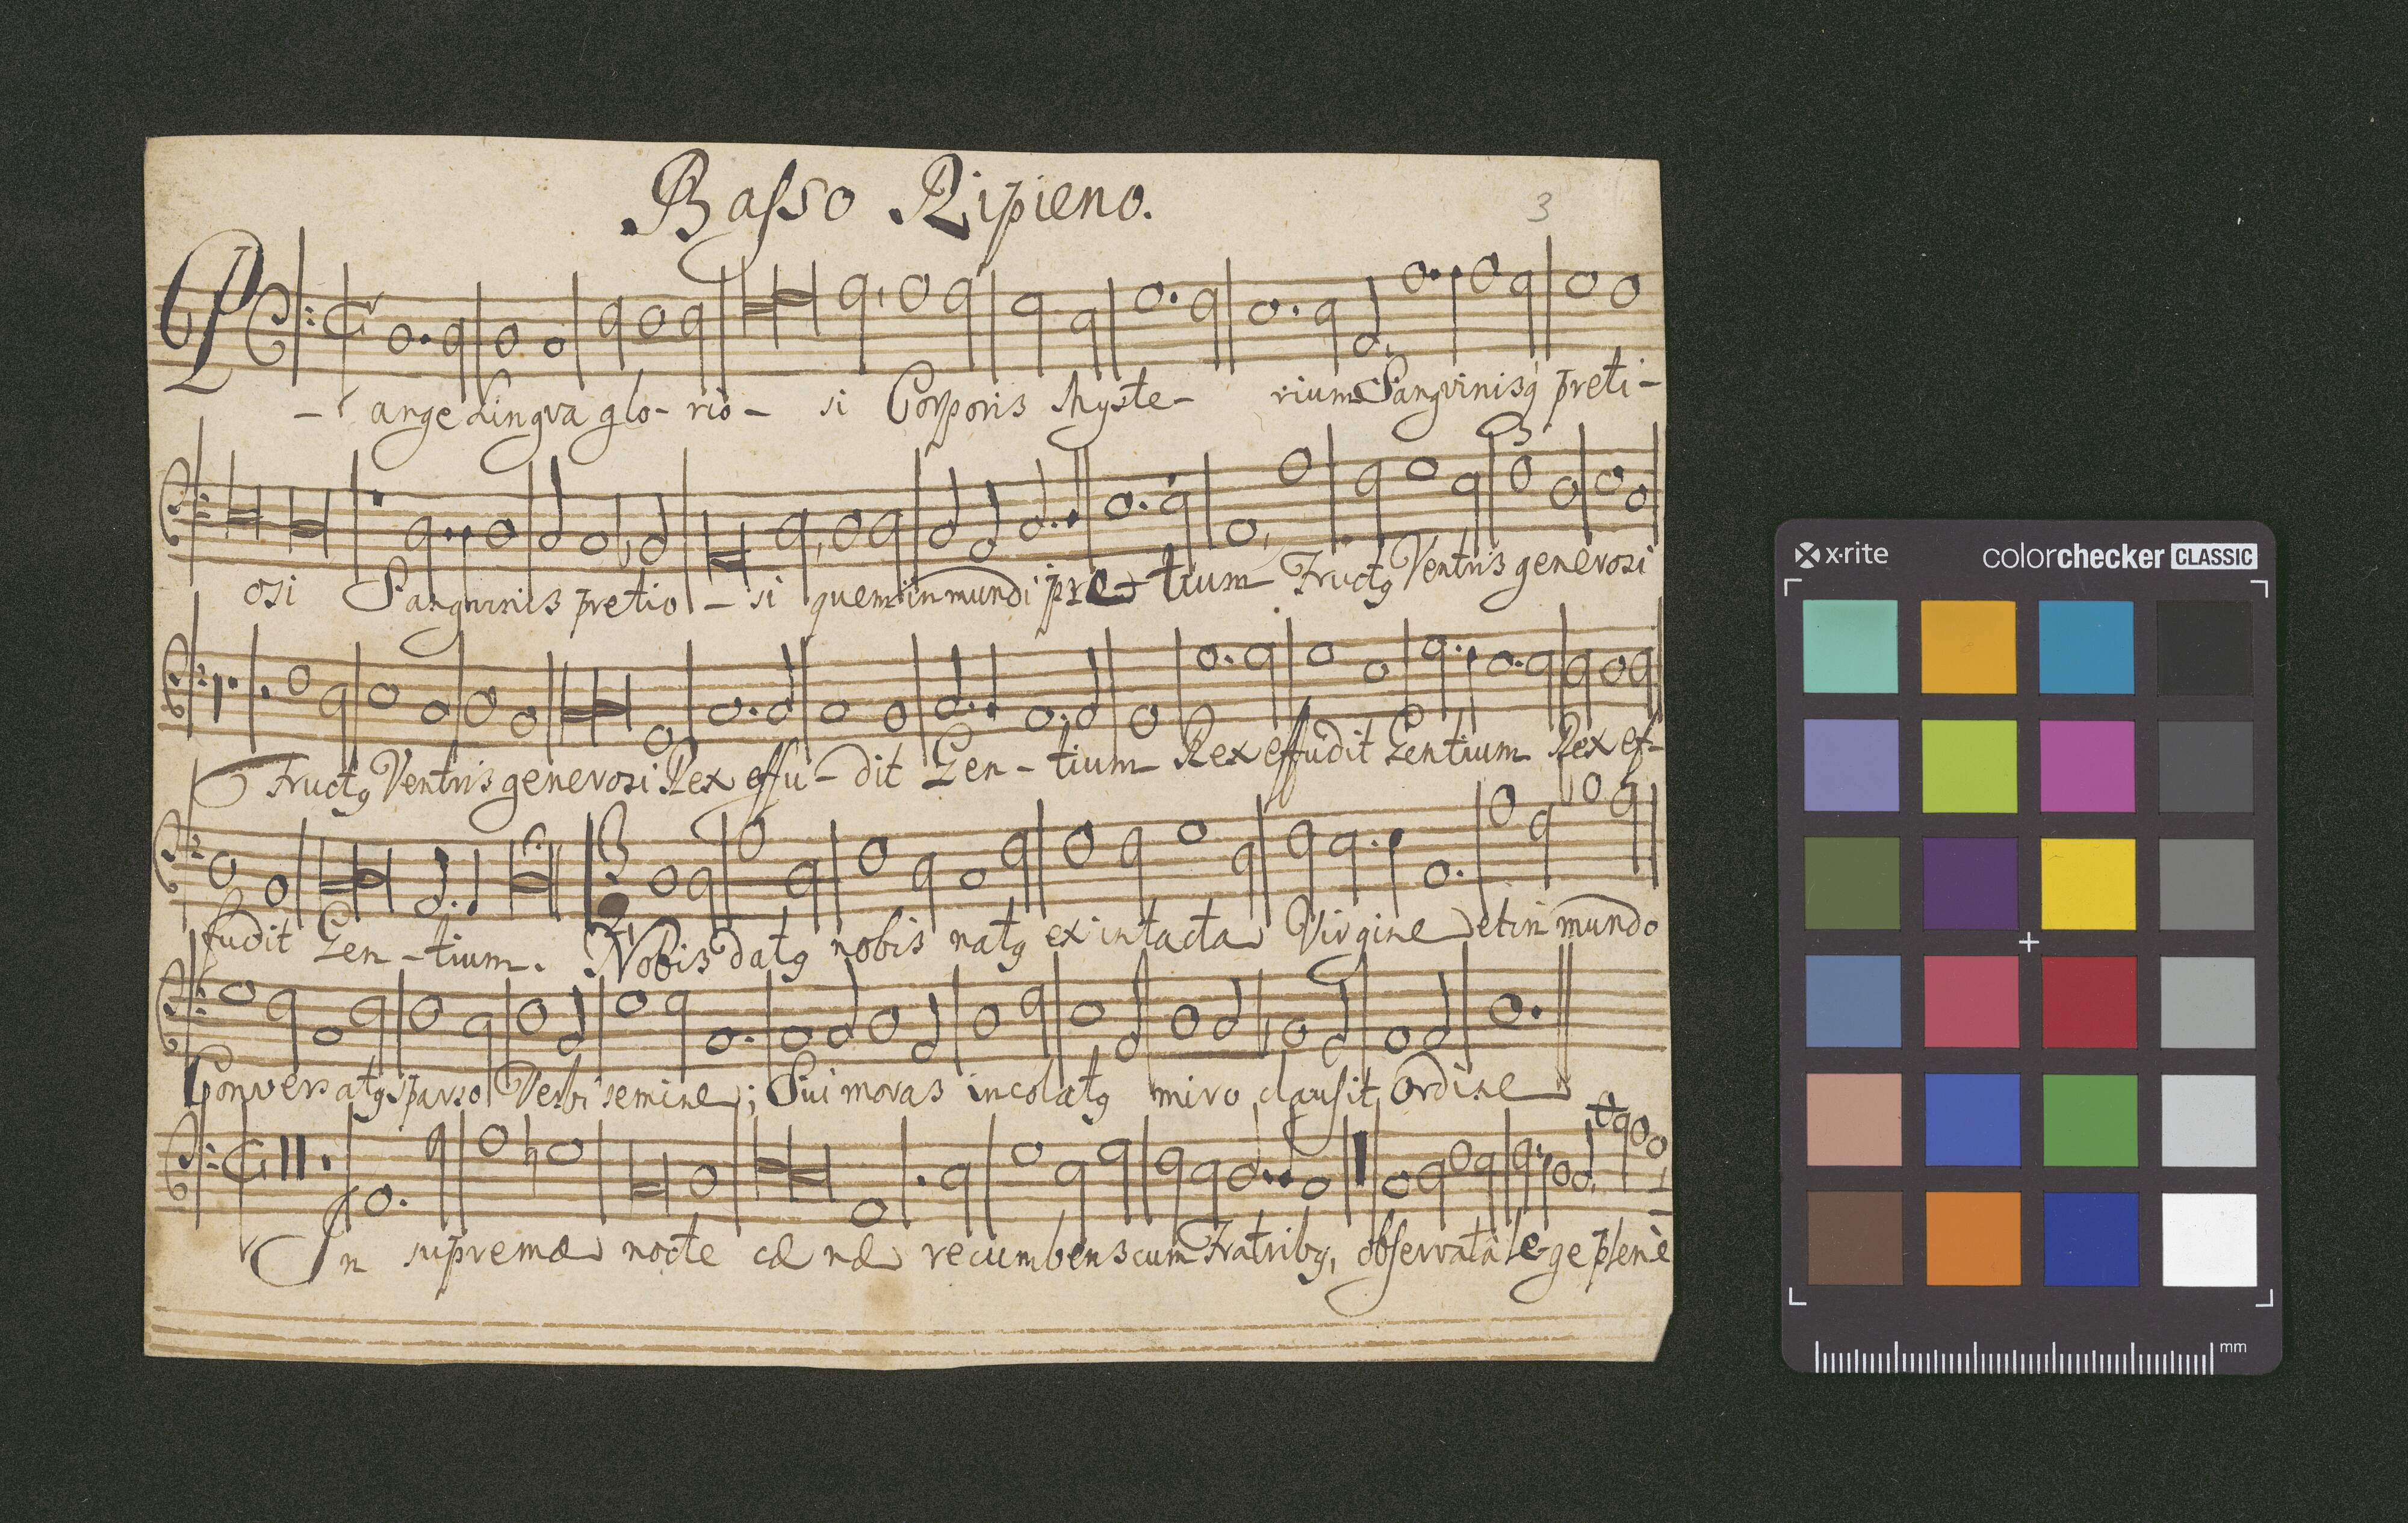 Basso Ripieno.
3
Pange Lingva glo- rio- si Corporis Myste- rium Sangvinisq preti-
osi Sangvinis pretio - si quem in mundi pre- tium Fructq Ventris generosi
3
Fructq Ventris generosi Rex effu- dit Gen- tium Rex effudit Gentium Rex ef-
fudit Gen- tium. Nobis datq nobis natq ex intacta Virgine et in mundo
3
2
Conversatq sparso Verbi semine; Sui moras incolatq miro clausit ordine
In supremæ nocte cæ næ recumbens cum Fratribq, observata lege plenè
x-rite
colorchecker CLASSIC
mm